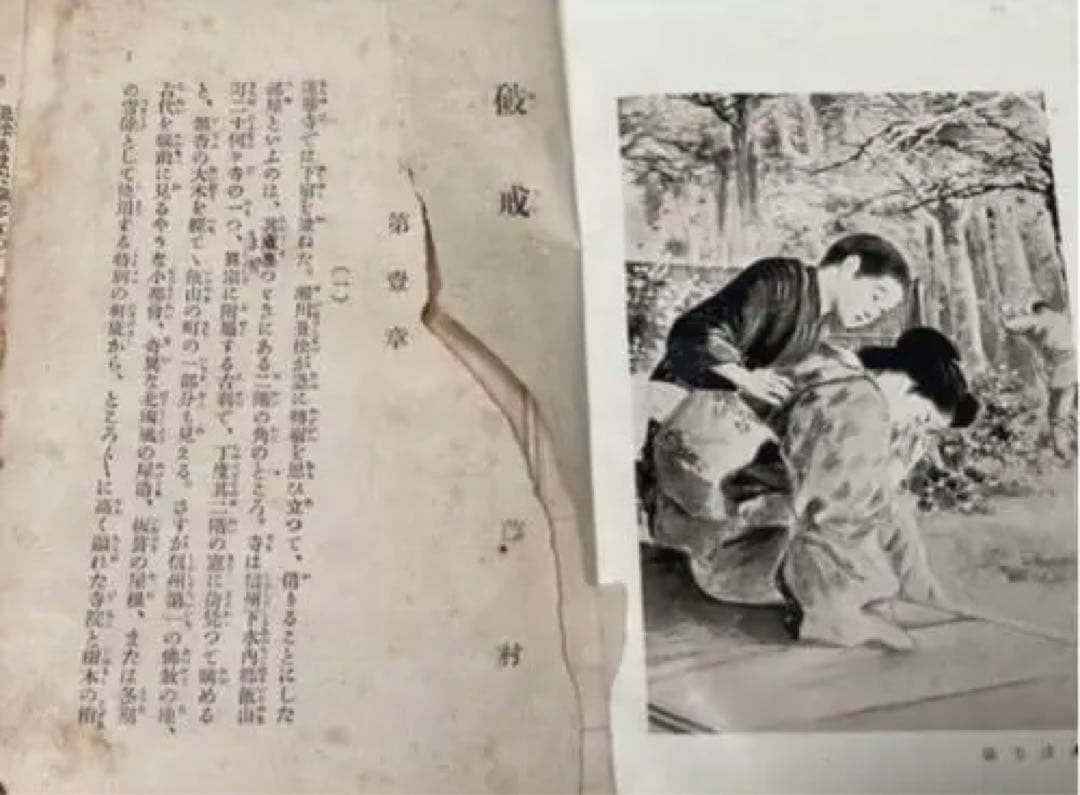 破戒
村
第壹章
(一)
蓮華寺では下宿を兼ねた。瀬川丑松が急に轉宿を思ひ立つて、借りることにした
部屋といふのは、其藏裏つゞきにある二階の角のところ。寺は信州下水內郡飯山
町二十何ヶ寺の一つ、眞宗に附屬する古刹で、丁度其二階の窓に倚凭つて眺める
と、銀杏の大木を經てゝ飯山の町の一部分も見える。さすが信州第一の佛敎の地、
古代を眼前に見るやうな小都會、奇異な北國風の屋造、板葺の屋根、または冬期
の雪除として使用する特別の軒庇から、ところ〴〵に高く顯れた寺院と樹木の梢
1